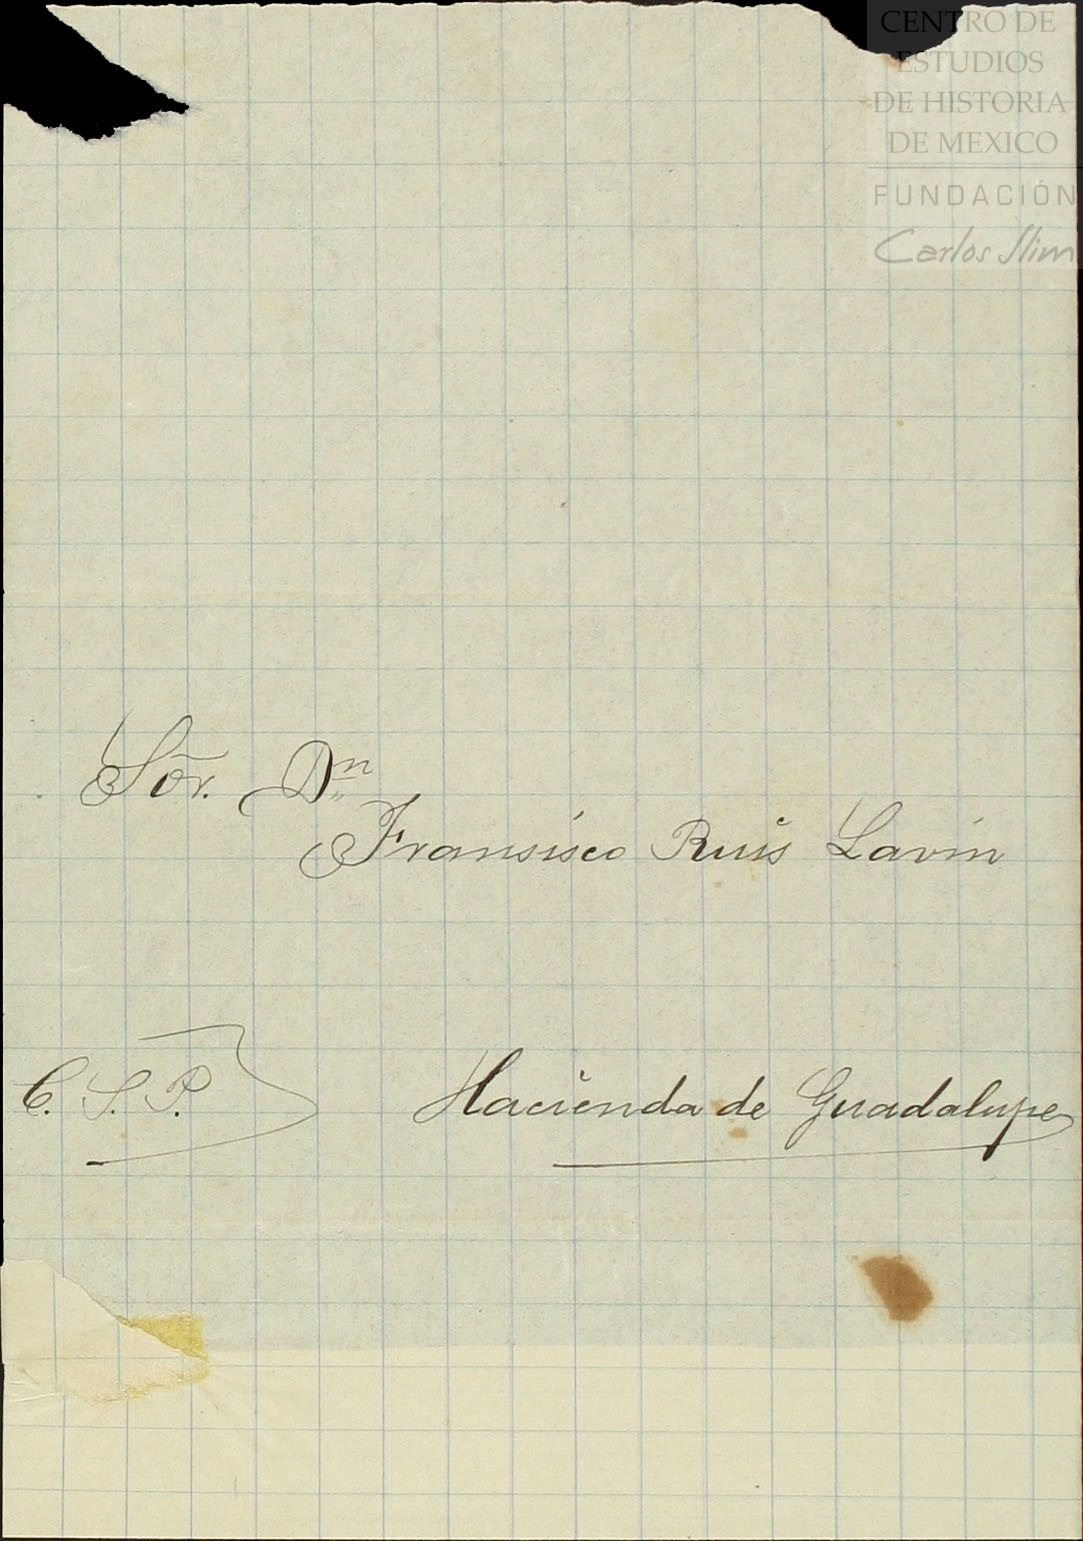 CENTRO DE
ESTUDIOS
DE HISTORIA
DE MEXICO
FUNDACIÓN
Carlos Slim
Sõr. Dn
Fransisco Ruis Lavin
C. S. P.
Hacienda de Guadalupe